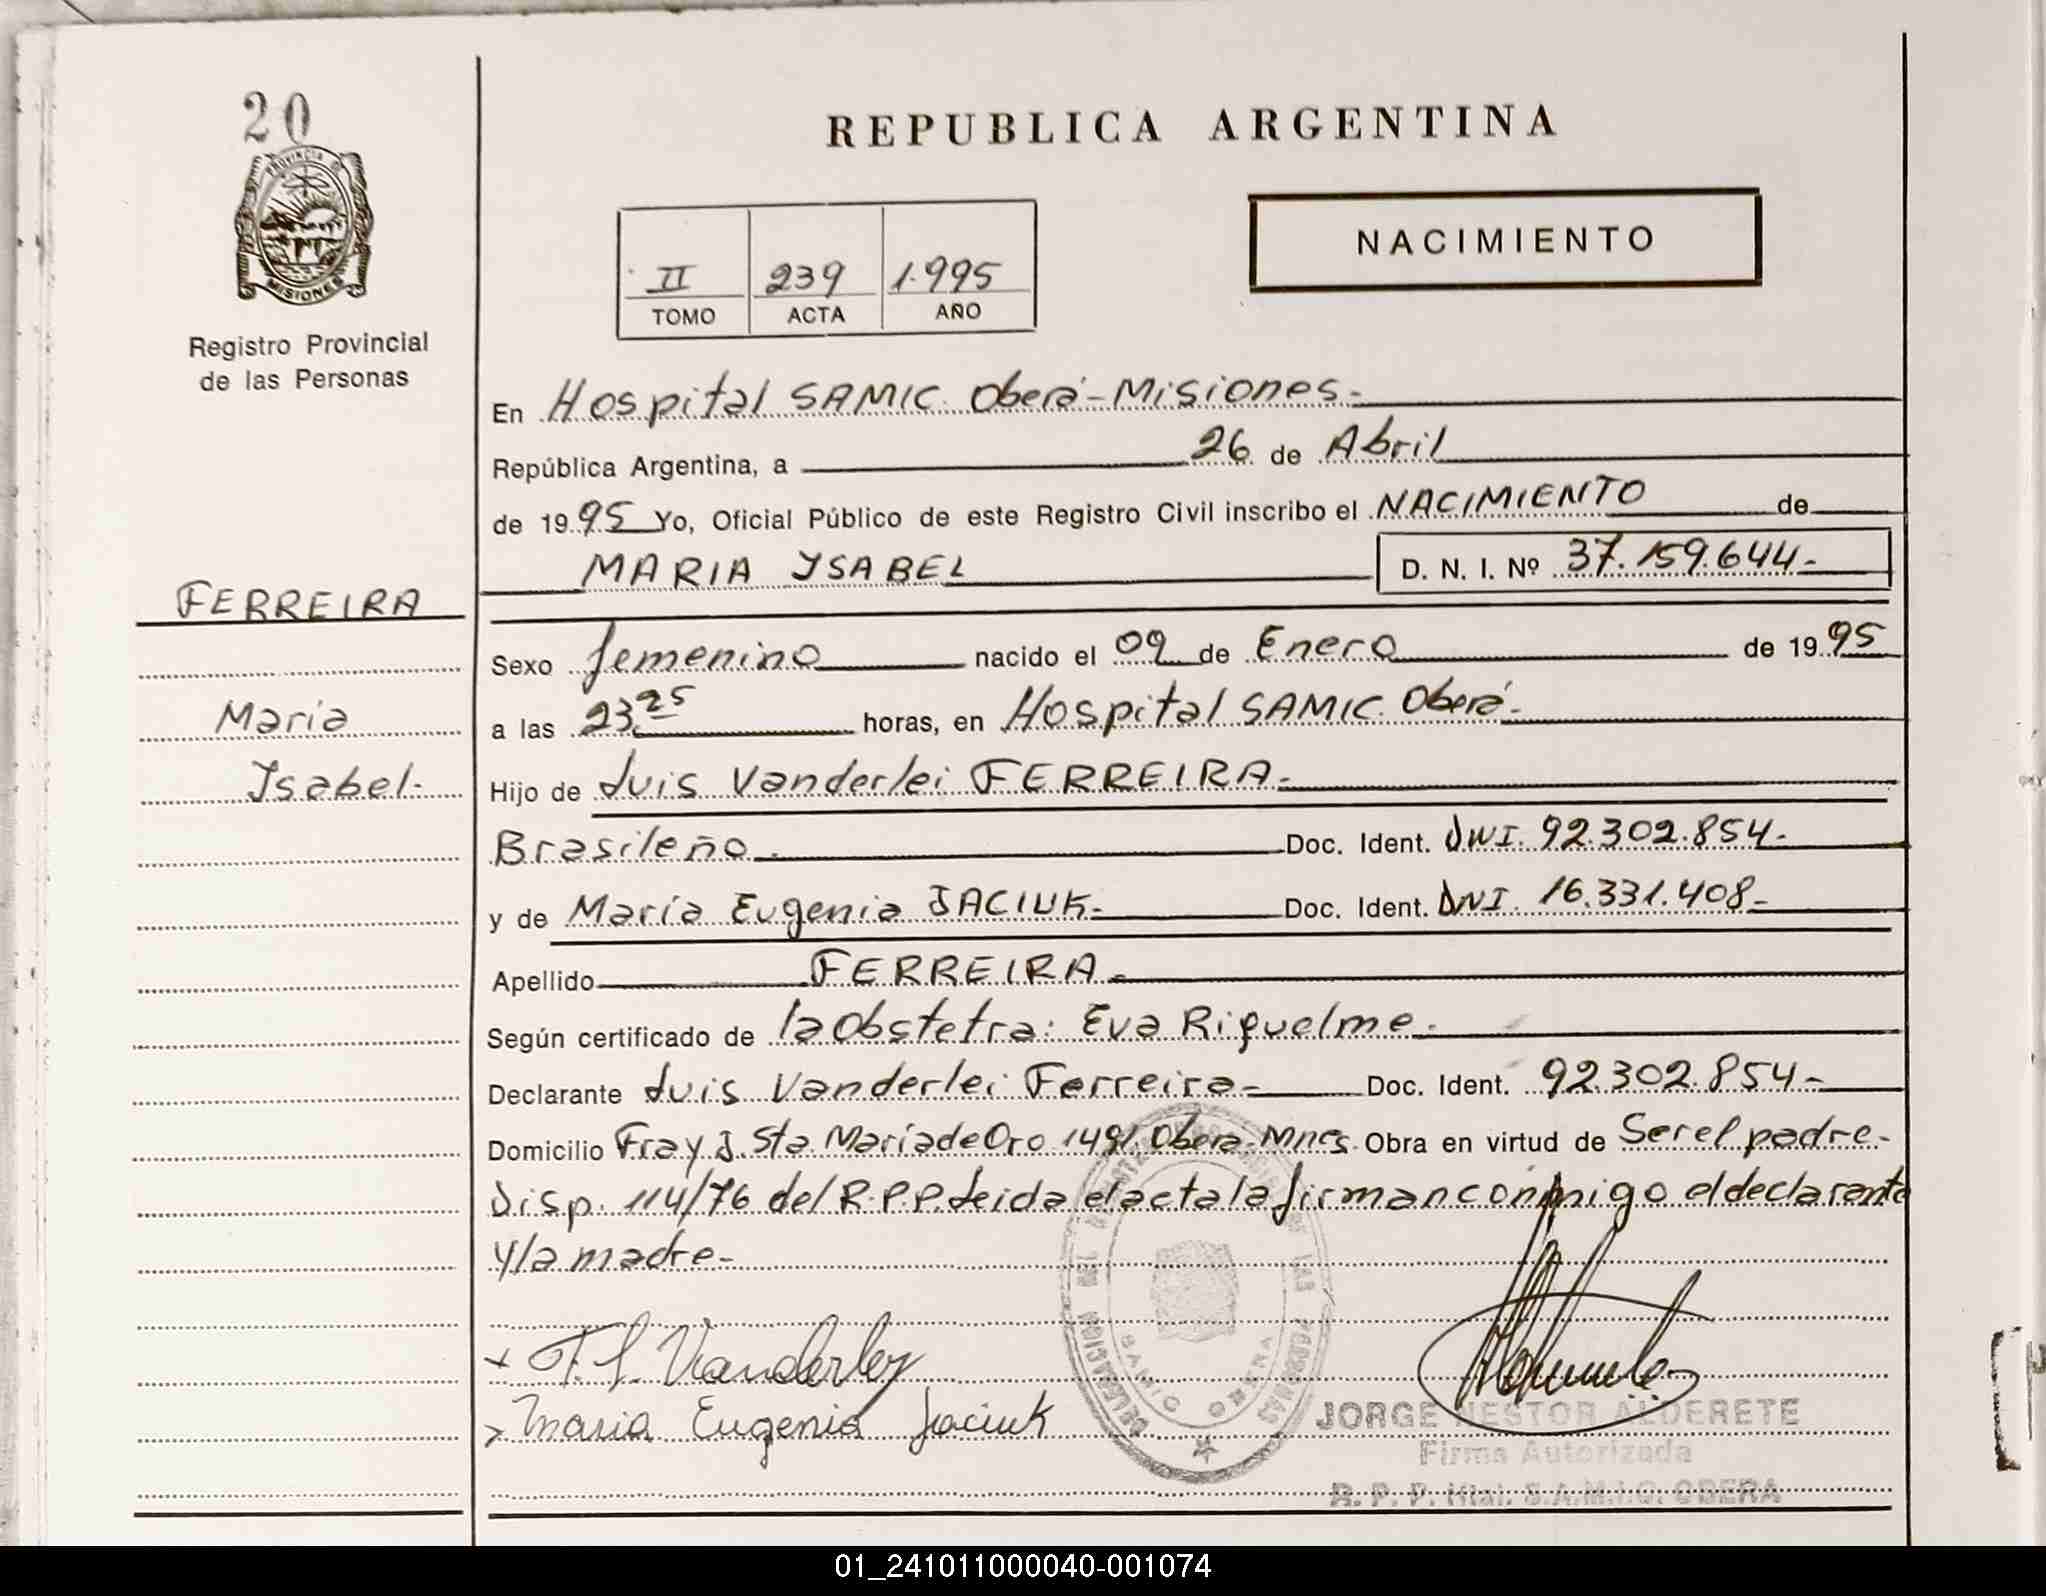 20
PROVINCIA DE
MISIONES
Registro Provincial
de las Personas
REPUBLICA ARGENTINA
II 239 1.995
TOMO ACTA AÑO
NACIMIENTO
En Hospital SAMIC. Oberá-Misiones.-
República Argentina, a 26 de Abril
de 1995 Yo, Oficial Público de este Registro Civil inscribo el NACIMIENTO de
MARIA YSABEL D. N. I. Nº 37.159.644.-
FERREIRA
Maria
Ysabel.-
Sexo femenino nacido el 09 de Enero de 1995
a las 23,25 horas, en Hospital SAMIC. Oberá.-
Hijo de Luis Vanderlei FERREIRA.-
Brasileño.- Doc. Ident. DNI. 92.302.854.-
y de María Eugenia JACIUK.- Doc. Ident. DNI. 16.331.408.-
Apellido FERREIRA.-
Según certificado de la Obstetra: Eva Riquelme.-
Declarante Luis Vanderlei Ferreira.- Doc. Ident. 92.302.854.-
Domicilio Fray J. Sta. María de Oro 1491. Oberá-Mnes. Obra en virtud de Ser el padre.-
Disp. 114/76 del R.P.P. Leida el acta la firman conmigo el declarante
y la madre.-
F. L. Vanderley
Maria Eugenia Jaciuk
DELEGACION
LAS PERSONAS
OBERA
JORGE NESTOR ALDERETE
Firma Autorizada
R. P. P. Htal. S.A.M.I.C. OBERA
01_241011000040-001074